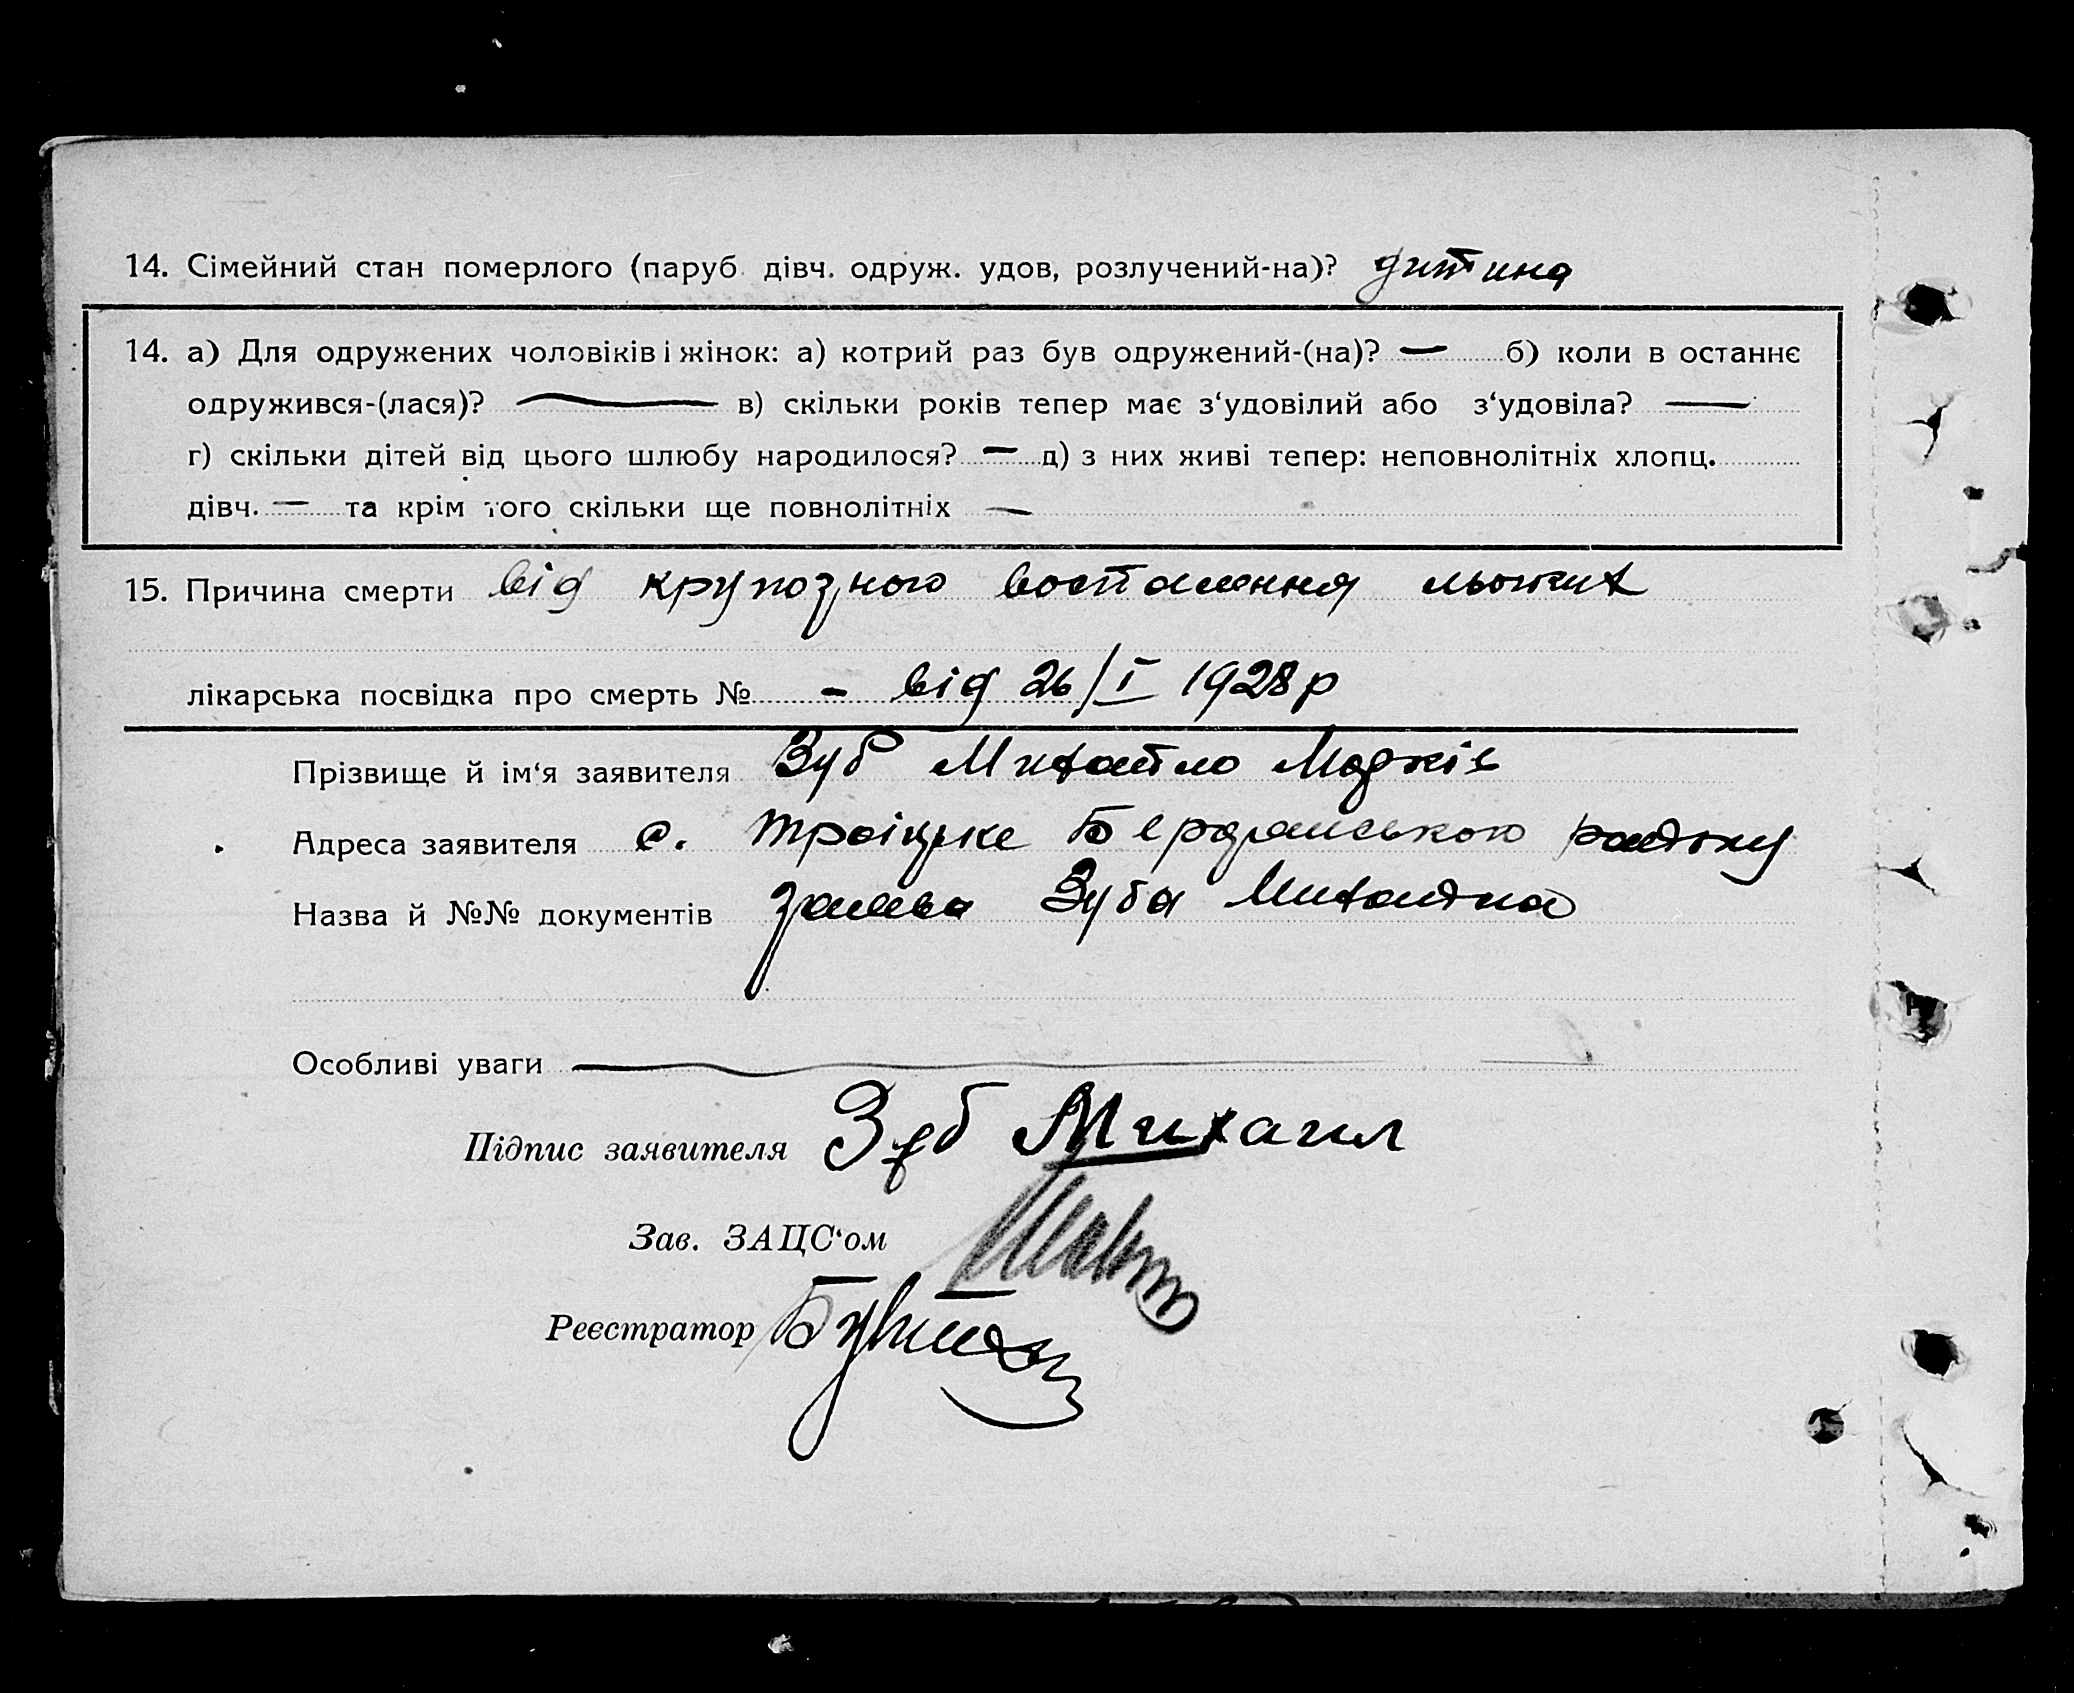 14. Сімейний стан померлого (паруб. дівч. одруж. удов, розлучений-на)? дитина
14. а) Для одружених чоловіків і жінок: а) котрий раз був одружений-(на)? — б) коли в останнє
одружився-(лася)? — в) скільки років тепер має з‘удовілий або з‘удовіла? —
г) скільки дітей від цього шлюбу народилося? — д) з них живі тепер: неповнолітніх хлопц.
дівч. — та крім того скільки ще повнолітніх —
15. Причина смерти від крупозного воспалення льогких
лікарська посвідка про смерть № - від 26/I 1928 р
Прізвище й ім‘я заявителя Зуб Михайло
Адреса заявителя с. Троіцьке Бердянського району
Назва й №№ документів заява Зуба Михайла
Особливі уваги —
Підпис заявителя Зуб Михаил
Зав. ЗАЦС‘ом
Реєстратор